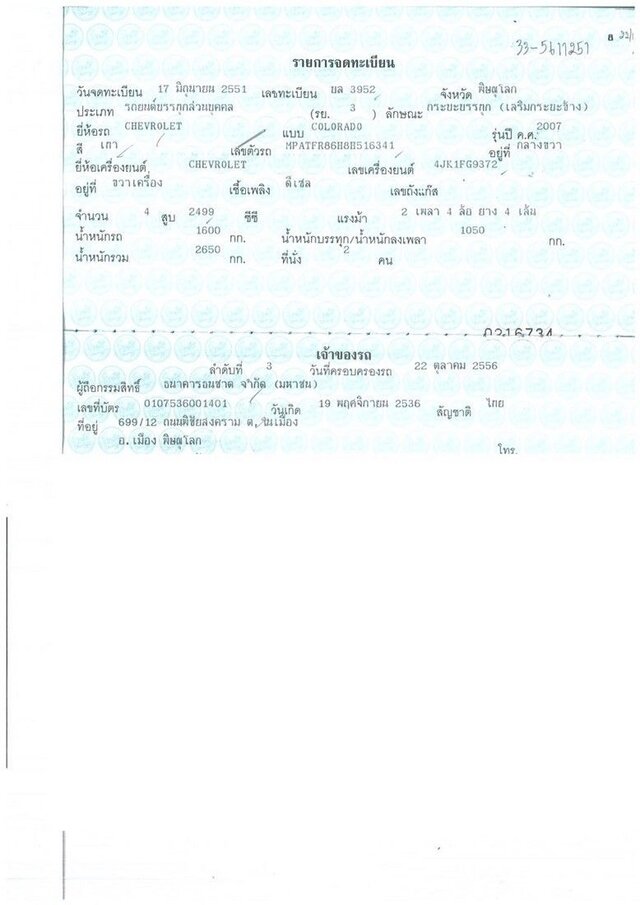 33-5617251
รายการจดทะเบียน
วันจดทะเบียน 17 มิถุนายน 2551 เลขทะเบียน บล 3952 จังหวัด พิษณุโลก
ประเภท รถยนต์บรรทุกส่วนบุคคล (รย. 3 ) ลักษณะ กระบะบรรทุก (เสริมกระบะข้าง)
ยี่ห้อรถ CHEVROLET แบบ COLORADO รุ่นปี ค.ศ. 2007
สี เทา เลขตัวรถ MPATFR86H8H516341 อยู่ที่ กลางขวา
ยี่ห้อเครื่องยนต์ CHEVROLET เลขเครื่องยนต์ 4JK1FG9372
อยู่ที่ ขวาเครื่อง เชื้อเพลิง ดีเซล เลขถังแก๊ส
จำนวน 4 สูบ 2499 ซีซี แรงม้า 2 เพลา 4 ล้อ ยาง 4 เส้น
น้ำหนักรถ 1600 กก. น้ำหนักบรรทุก/น้ำหนักลงเพลา 1050 กก.
น้ำหนักรวม 2650 กก. ที่นั่ง 2 คน
0216734
เจ้าของรถ
ลำดับที่ 3 วันที่ครอบครองรถ 22 ตุลาคม 2556
ผู้ถือกรรมสิทธิ์ ธนาคารธนชาต จำกัด (มหาชน)
เลขที่บัตร 0107536001401 วันเกิด 19 พฤศจิกายน 2536 สัญชาติ ไทย
ที่อยู่ 699/12 ถนนพิชัยสงคราม ต.ในเมือง
อ.เมือง พิษณุโลก
โทร.